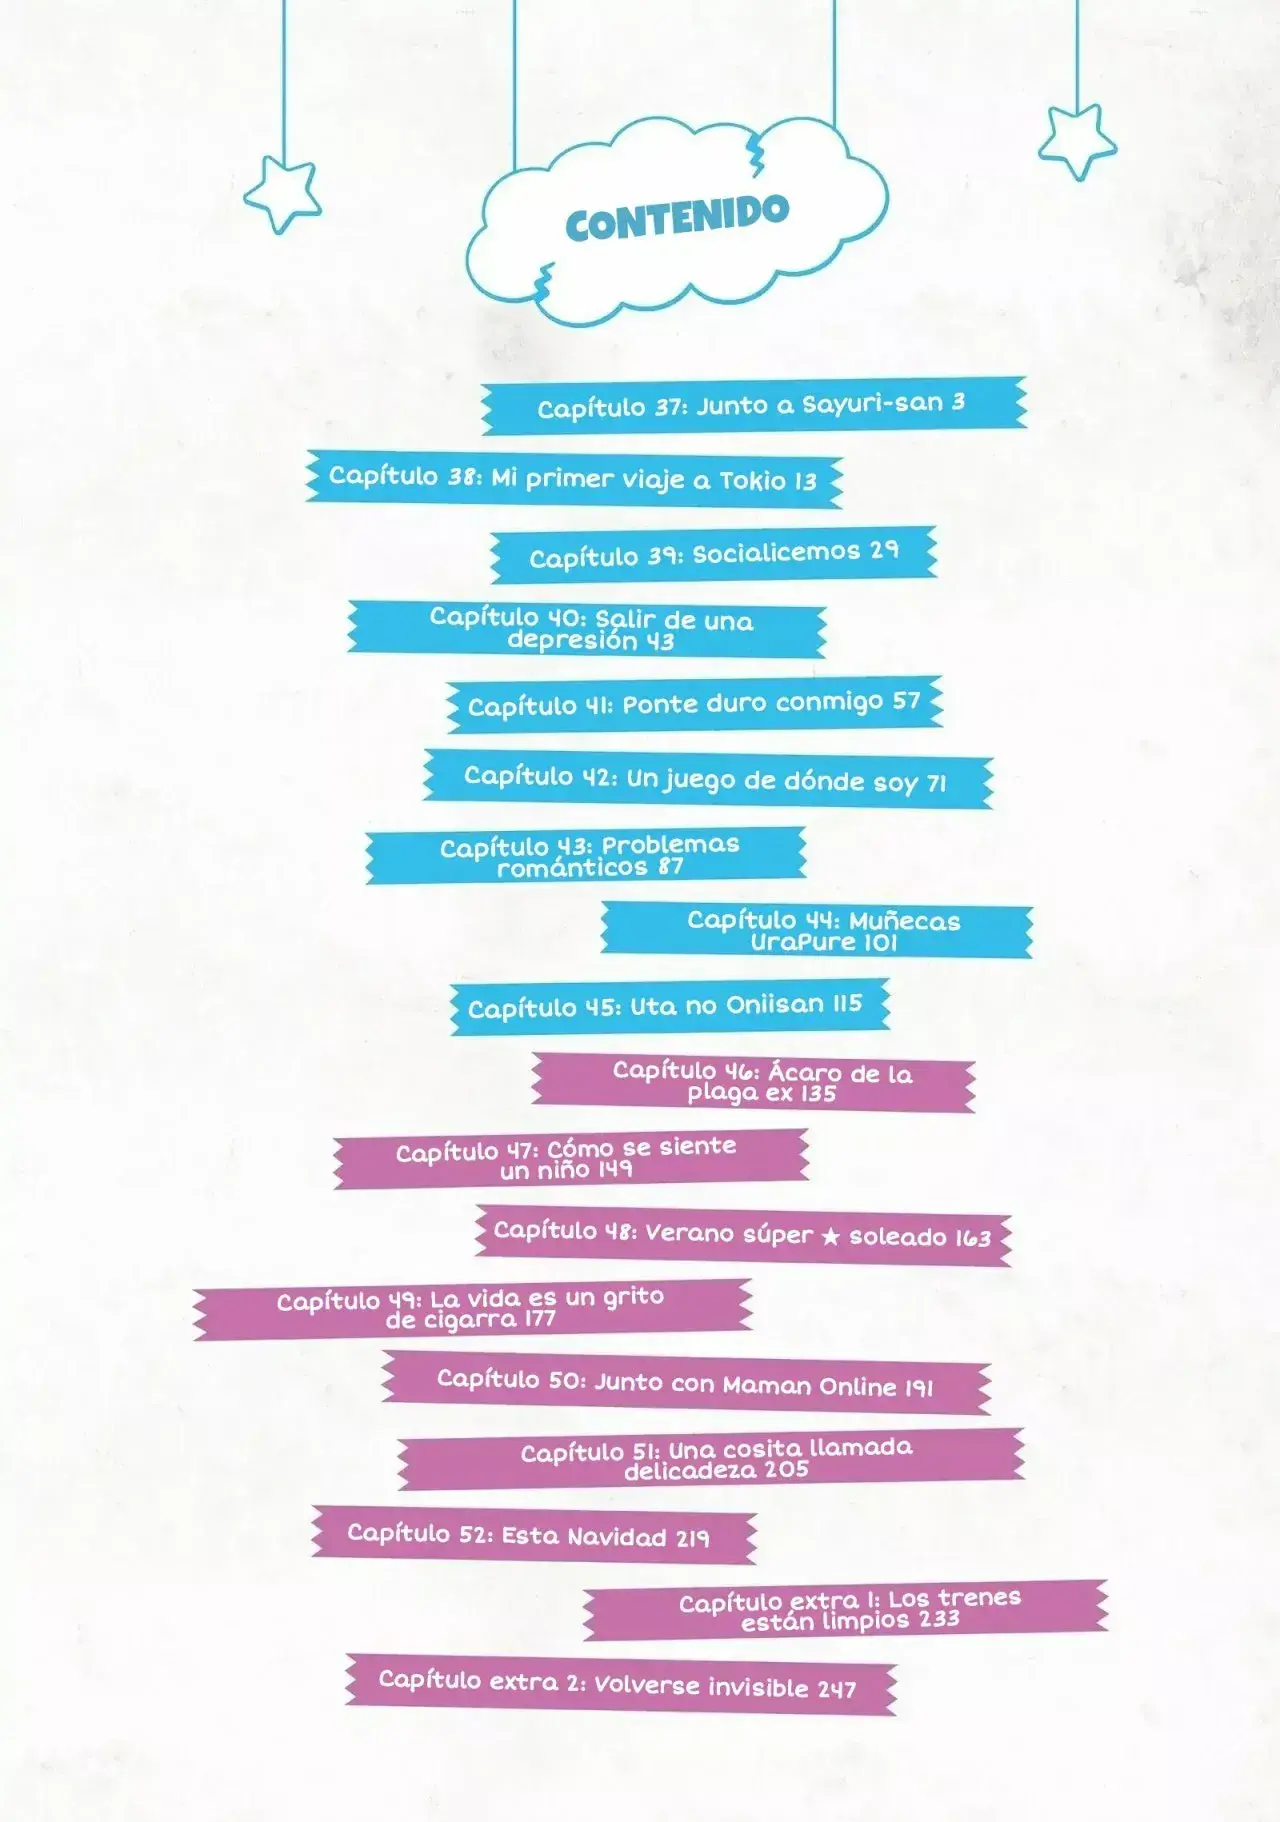 CONTENIDO
Capítulo 37: Junto a Sayuri-san 3
Capítulo 38: Mi primer viaje a Tokio 13
Capítulo 39: Socialicemos 29
Capítulo 40: Salir de una
depresión 43
Capítulo 41: Ponte duro conmigo 57
Capítulo 42: Un juego de dónde soy 71
Capítulo 43: Problemas
románticos 87
Capítulo 44: Muñecas
UraPure 101
Capítulo 45: Uta no Oniisan 115
Capítulo 46: Ácaro de la
plaga ex 135
Capítulo 47: Cómo se siente
un niño 149
Capítulo 48: Verano súper ★ soleado 163
Capítulo 49: La vida es un grito
de cigarra 177
Capítulo 50: Junto con Maman Online 191
Capítulo 51: Una cosita llamada
delicadeza 205
Capítulo 52: Esta Navidad 219
Capítulo extra 1: Los trenes
están limpios 233
Capítulo extra 2: Volverse invisible 247